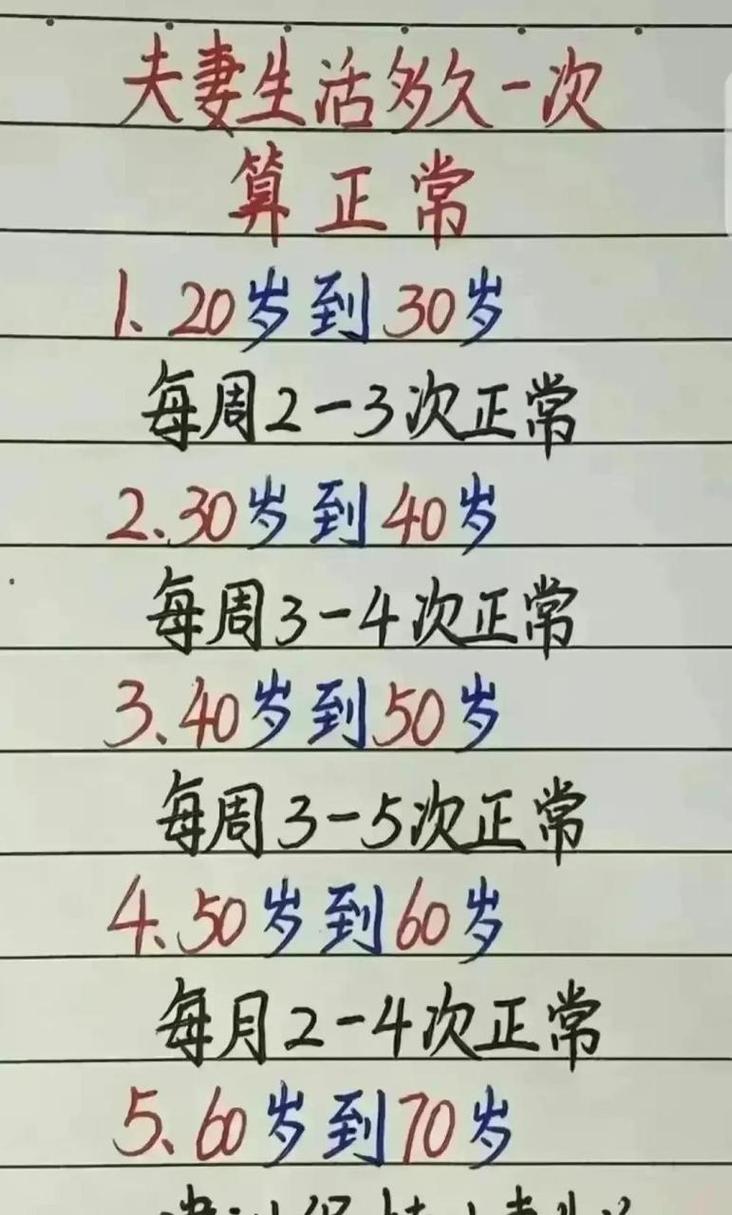 夫妻生活多久一次
算正常
1、20岁到30岁
每周2-3次正常
2、30岁到40岁
每周3-4次正常
3、40岁到50岁
每周3-5次正常
4、50岁到60岁
每月2-4次正常
5、60岁到70岁